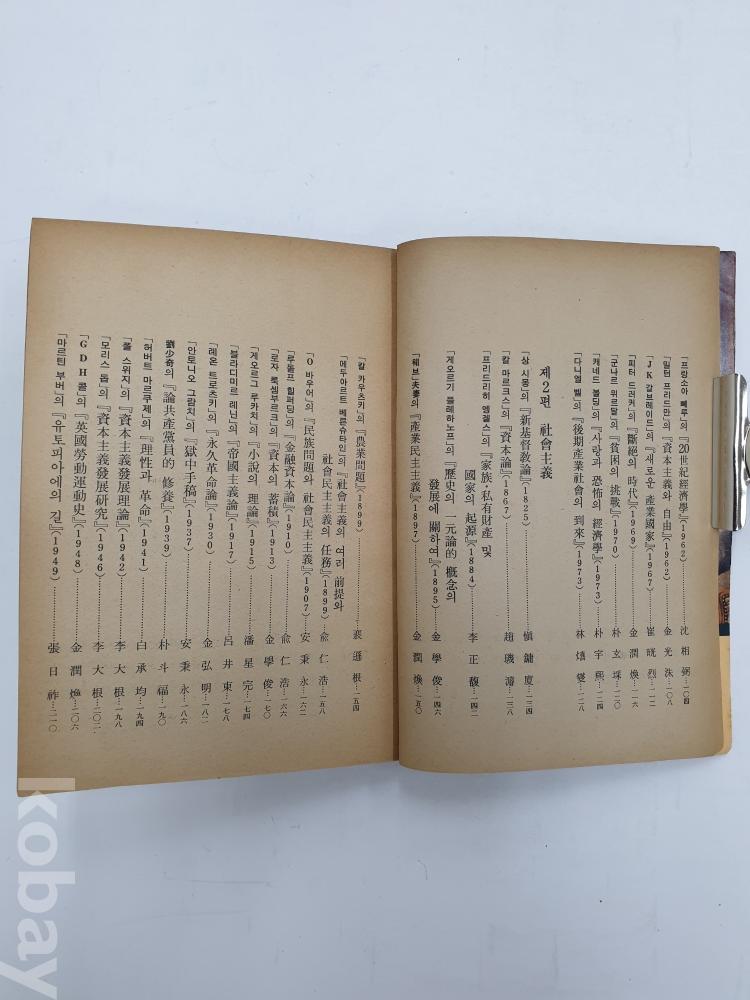 「프랑소아 뻬루」의 『20世紀經濟學』(1962)……沈相弼…一〇四
「밀턴 프리드만」의 『資本主義와 自由』(1962)……金光洙…一〇八
「JK 갈브레이드」의 『새로운 產業國家』(1967)……崔晄烈…一一二
「피터 드러커」의 『斷絕의 時代』(1969)……金潤煥…一一六
「군나르 뮈르달」의 『貧困의 挑戰』(1970)……朴玄埰…一二〇
「캐네드 볼딩」의 『사랑과 恐怖의 經濟學』(1973)……朴宇熙…一二四
「다니엘 벨」의 『後期產業社會의 到來』(1973)……林熺燮…一二八
제2편 社會主義
「상 시몽」의 『新基督敎論』(1825)……愼鏞廈…一三四
「칼 마르크스」의 『資本論』(1867)……趙璣濬…一三八
「프리드리히 엥겔스」의 『家族・私有財產 및
國家의 起源』(1884)……李正馥…一四二
「게오르기 플레하노프」의 『歷史의 一元論的 槪念의
發展에 關하여』(1895)……金學俊…一四六
「웨브」夫妻의 『產業民主主義』(1897)……金潤煥…一五〇
「칼 카우츠키」의 『農業問題』(1899)……裵遜根…一五四
「에두아르트 베른슈타인」의 『社會主義의 여러 前提와
社會民主主義의 任務』(1899)……兪仁浩…一五八
「O 바우어」의 『民族問題와 社會民主主義』(1907)……安秉永…一六二
「루돌프 힐퍼딩」의 『金融資本論』(1910)……兪仁浩…一六六
「로자 룩셈부르크」의 『資本의 蓄積』(1913)……金學俊…一七〇
「게오르그 루카치」의 『小說의 理論』(1915)……潘星完…一七四
「블라디미르 레닌」의 『帝國主義論』(1917)……呂井東…一七八
「레온 트로츠키」의 『永久革命論』(1930)……金弘明…一八二
「안토니오 그람치」의 『獄中手稿』(1937)……安秉永…一八六
劉少奇의 『論共產黨員的 修養』(1939)……朴斗福…一九〇
「허버트 마르쿠제」의 『理性과 革命』(1941)……白承均…一九四
「폴 스위지」의 『資本主義發展理論』(1942)……李大根…一九八
「모리스 돕」의 『資本主義發展硏究』(1946)……李大根…二〇二
「GDH 콜」의 『英國勞動運動史』(1948)……金潤煥…二〇六
「마르틴 부버」의 『유토피아에의 길』(1949)……張日祚…二一〇
kobay